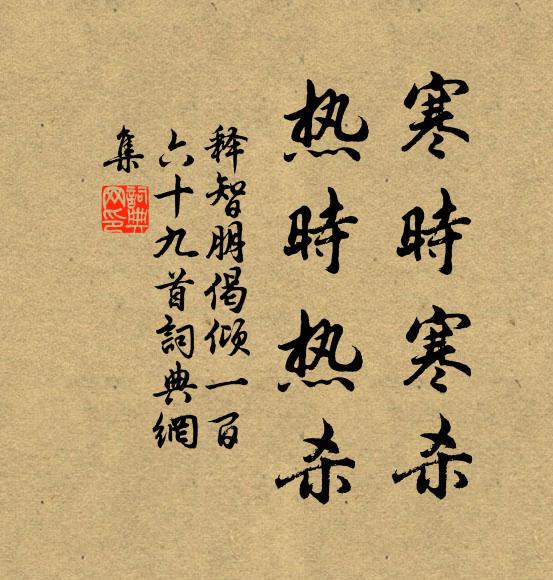 寒時寒杀
热時热杀
释智朋偈倾一百
六十九首詞典網
集
詞典网印